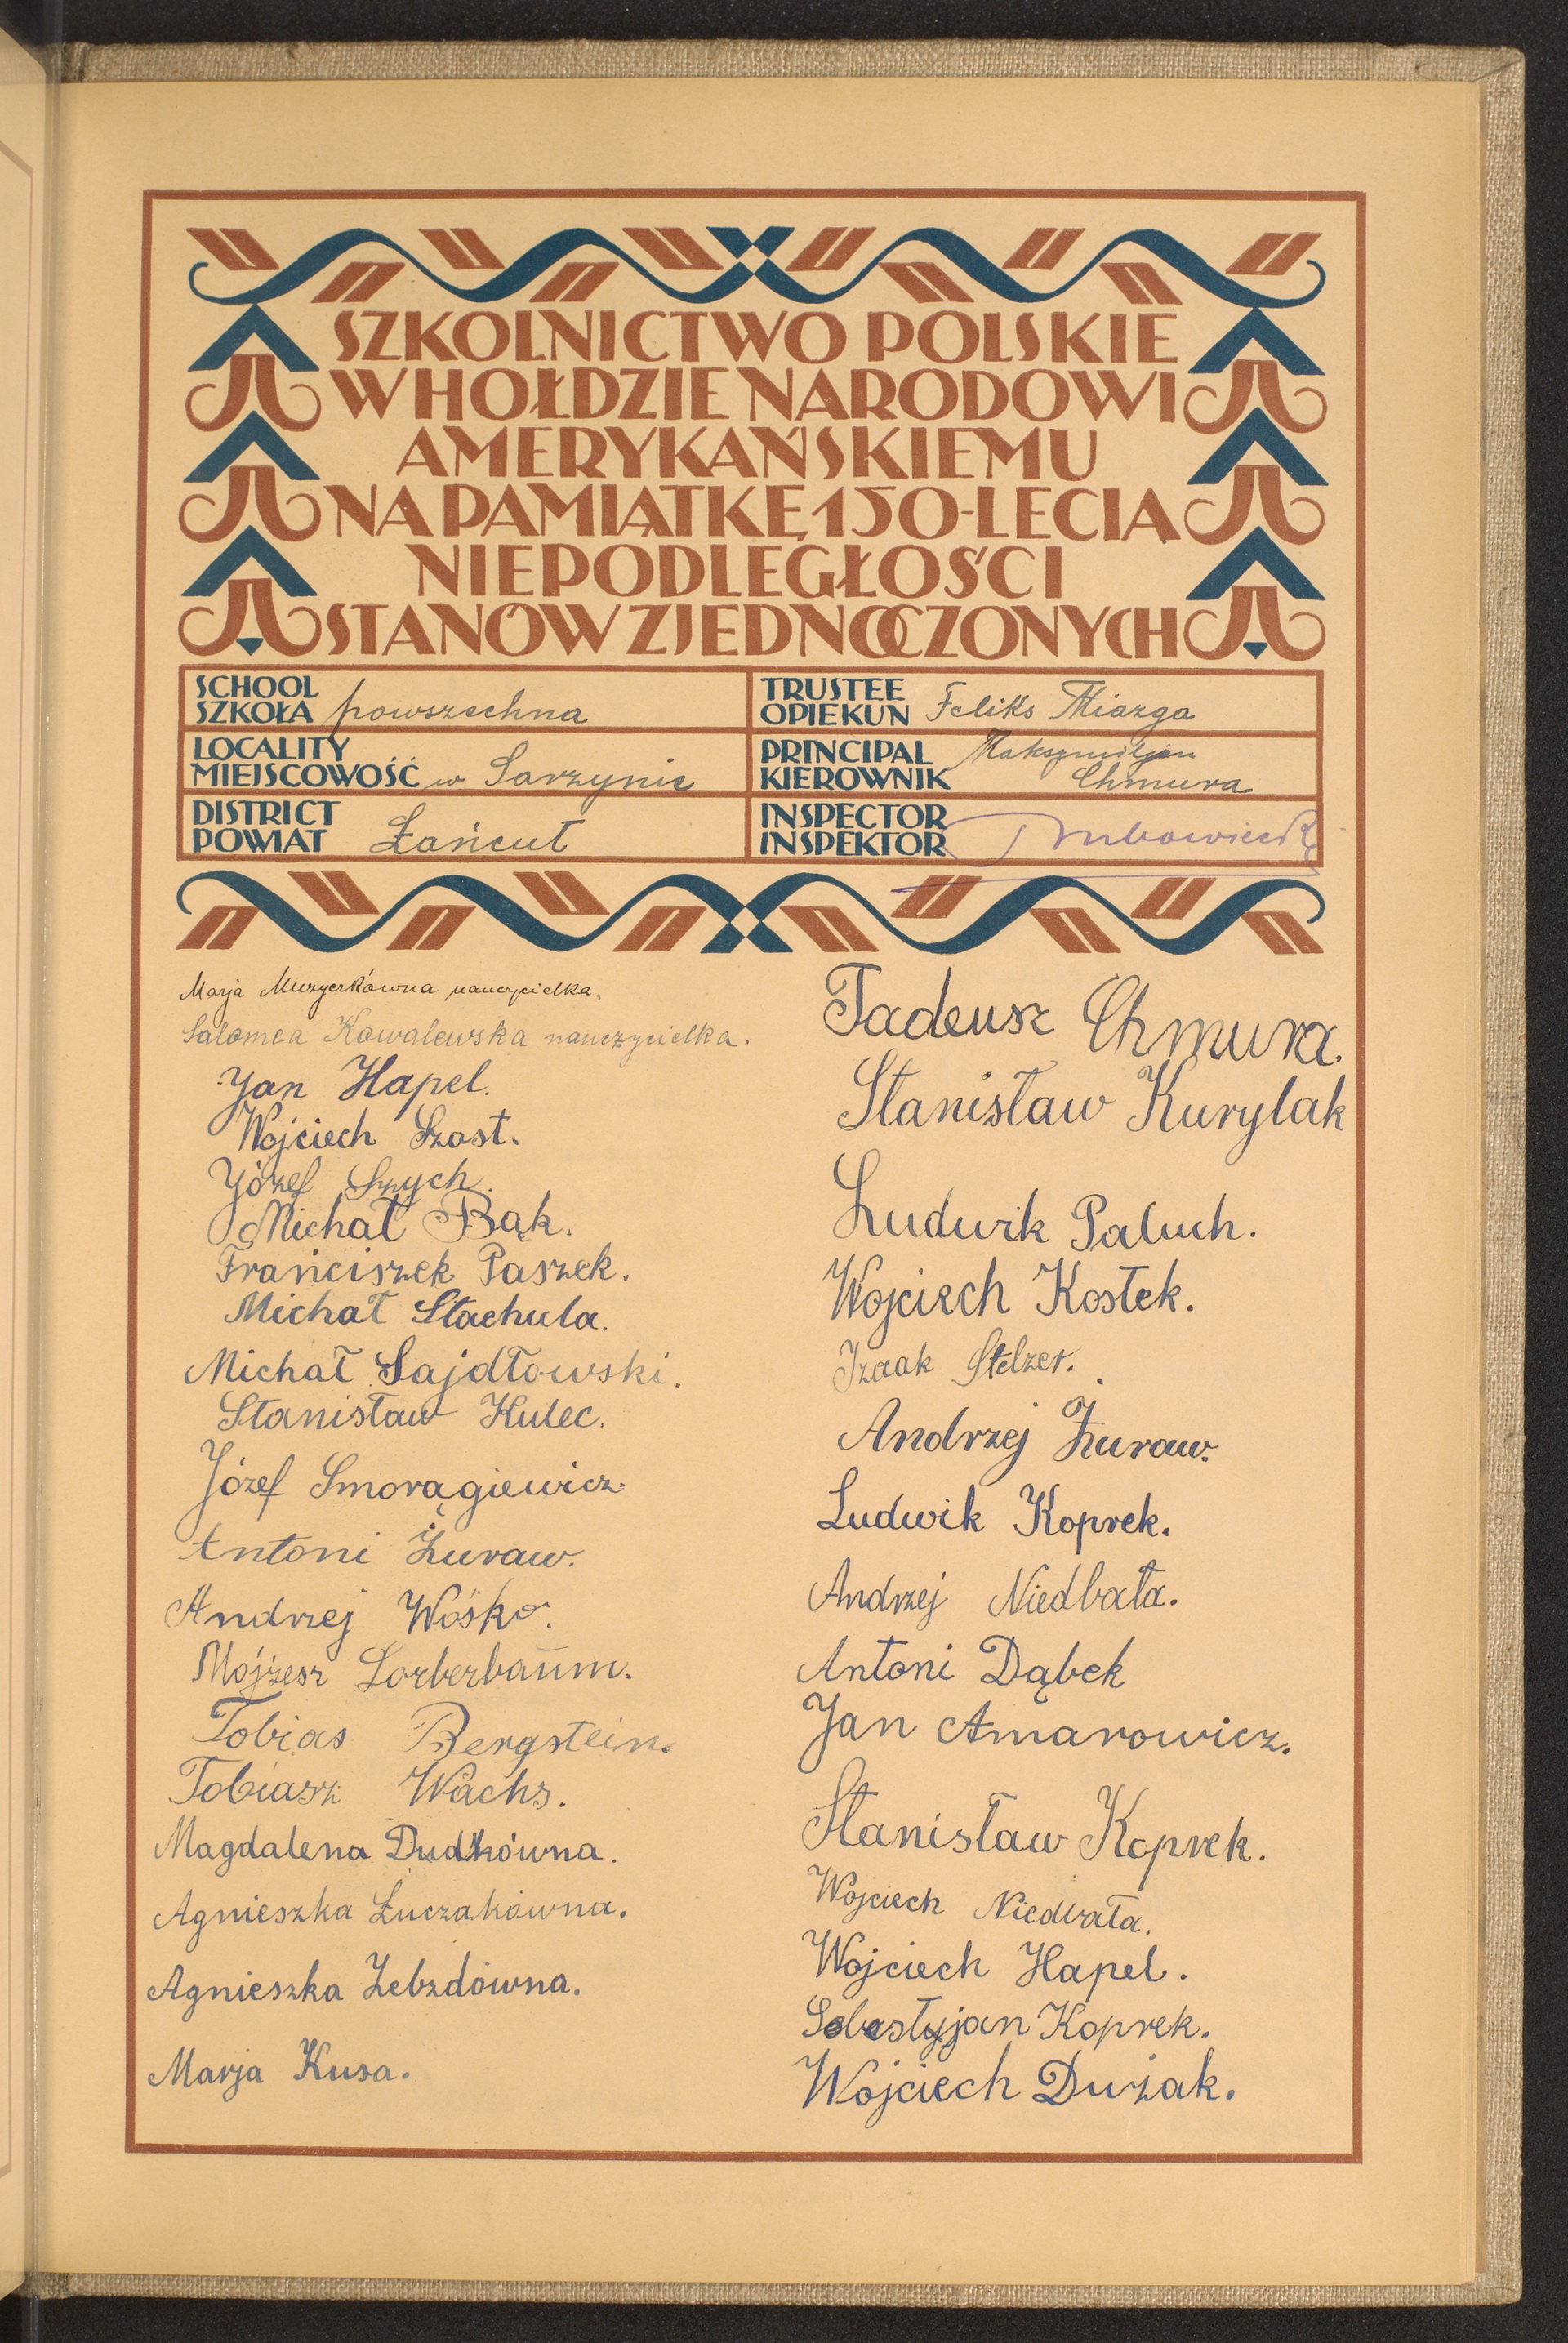 SZKOLNICTWO POLSKIE
W HOŁDZIE NARODOWI
AMERYKAŃSKIEMU
NA PAMIĄTKĘ 150-LECIA
NIEPODLEGŁOŚCI
STANÓW ZJEDNOCZONYCH
SCHOOL
SZKOŁA powszechna
LOCALITY
MIEJSCOWOŚĆ w Sarzynie
DISTRICT
POWIAT Łańcut
TRUSTEE
OPIEKUN Feliks Miazga
PRINCIPAL Maksymiljan
KIEROWNIK Chmura
INSPECTOR
INSPEKTOR
Marja Muzyczkówna nauczycielka.
Salomea Kowalewska nauczycielka.
Jan Hapel.
Wojciech Szost.
Józef Sznych.
Michał Bąk.
Franciszek Paszek.
Michał Stachula.
Michał Sajdłowski.
Stanisław Kulec.
Józef Smorągiewicz.
Antoni Żuraw.
Andrzej Wośko.
Mojżesz Lorberbaum.
Tobias Bergstein.
Tobiasz Wachs.
Magdalena Dudkówna.
Agnieszka Łuczakówna.
Agnieszka Zebzdówna.
Marja Kusa.
Tadeusz Chmura.
Stanisław Kurylak
Ludwik Paluch.
Wojciech Kostek.
Izaak Stelzer.
Andrzej Żuraw.
Ludwik Koprek.
Andrzej Niedbała.
Antoni Dąbek
Jan Amarowicz.
Stanisław Koprek.
Wojciech Niedbała.
Wojciech Hapel.
Sebestyjan Koprek.
Wojciech Dużak.